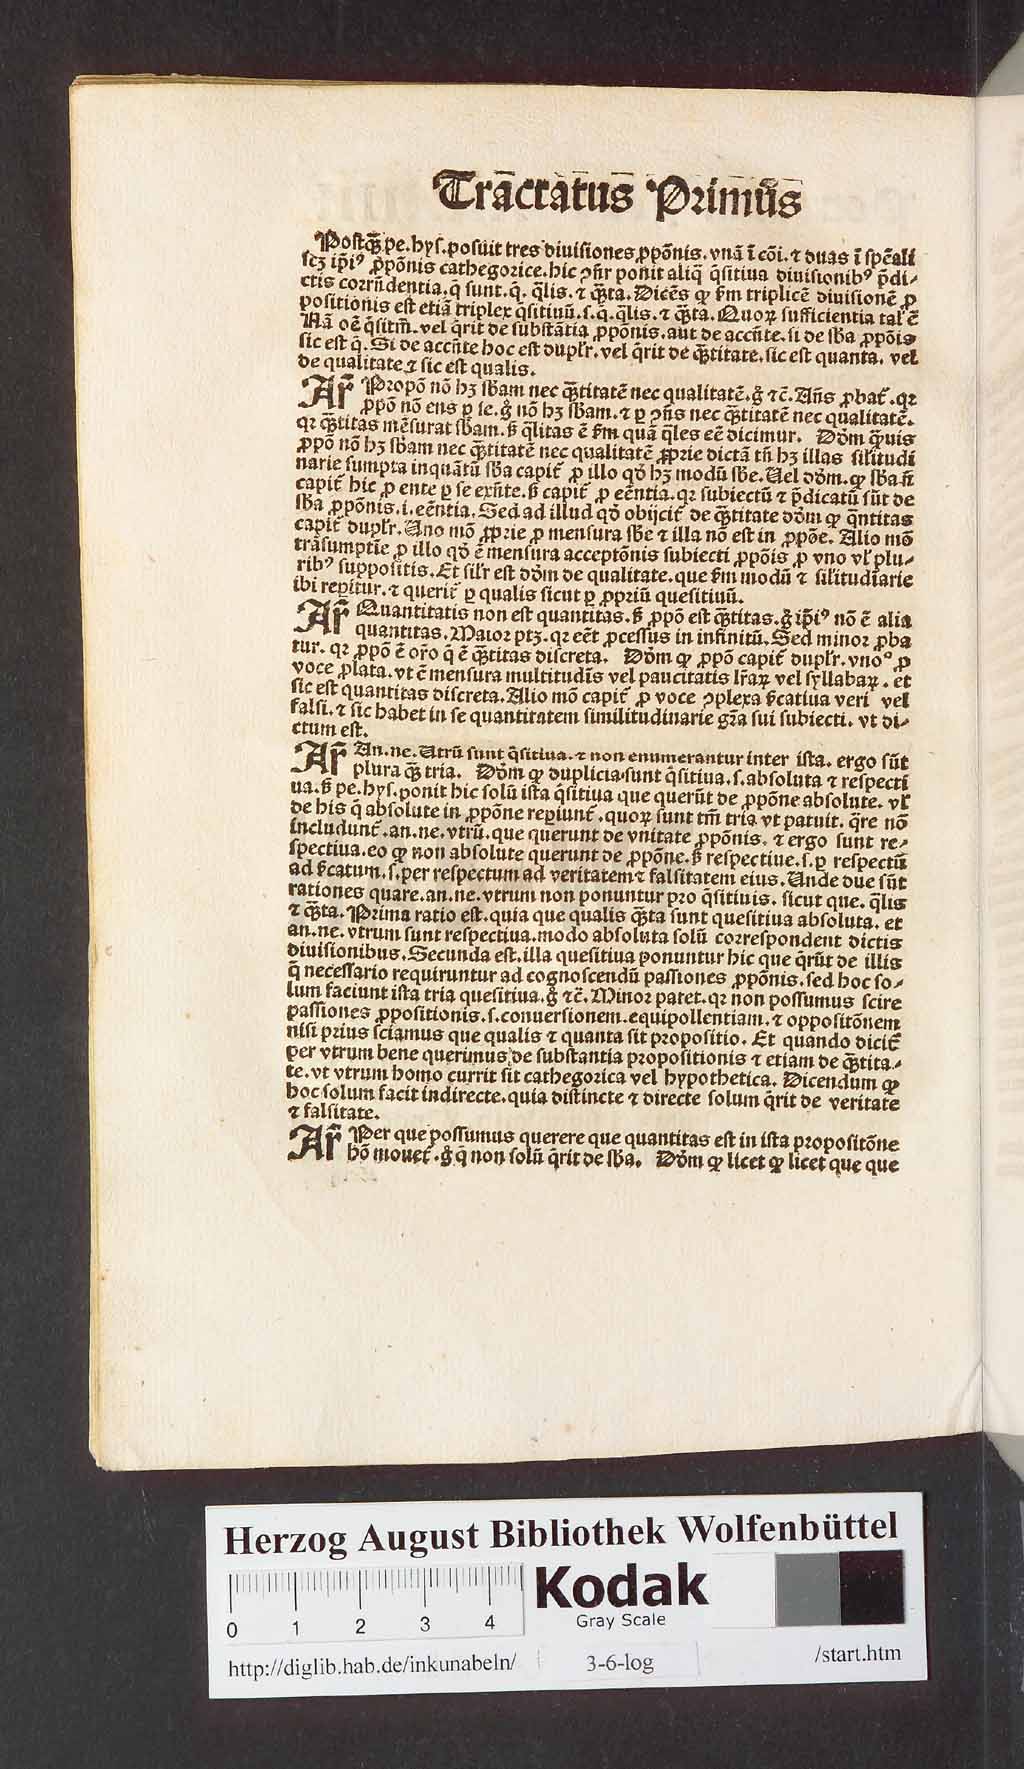 Tractatus Primus
Postq̄ꝫ pe. hys. posuit tres diuisiones ꝓpōnis. vnā ī cōi. ⁊ duas ī spēali
scꝫ ip̄iꝰ ꝓpōnis cathegorice. hic ꝯn̄r ponit aliq̄ q̄sitiua diuisionibꝰ p̄di⸗
ctis corrn̄dentia. q̄ sunt. q̄. q̄lis. ⁊ q̄ꝫta. Dicēs ꝙ ẜm triplicē diuisionē ꝓ
positionis est etiā triplex q̄sitiuū. s. q̄. q̄lis. ⁊ q̄ꝫta. Quoꝝ sufficientia tal' ē
Nā oē q̄sitm̄. vel q̄rit de substātia ꝓpōnis. aut de accn̄te. si de sb̄a ꝓpōis
sic est q̄. Si de accn̄te hoc est dupl'r. vel q̄rit de q̄ꝫtitate. sic est quanta. vel
de qualitate ⁊ sic est qualis.
Ar̄ Propō nō hꝫ sb̄am nec q̄ꝫtitatē nec qualitatē. g̊ ⁊c̄. An̄s ꝓbat᷑. qꝛ
ꝓpō nō ens ꝑ se. g̊ nō hꝫ sb̄am. ⁊ ꝑ ꝯn̄s nec q̄ꝫtitatē nec qualitatē.
qꝛ q̄ꝫtitas mēsurat sb̄am. ẜ q̄litas ē ẜm quā q̄les eē dicimur. Dōm q̄ꝫuis
ꝓpō nō hꝫ sb̄am nec q̄ꝫtitatē nec qualitatē ꝓprie dictā tn̄ hꝫ illas sil'itudi
narie sumpta inquātū sb̄a capit᷑ ꝓ illo qd̓ hꝫ modū sb̄e. Uel dōm. ꝙ sb̄a n̄
capit᷑ hic ꝓ ente ꝑ se exn̄te. ẜ capit᷑ ꝓ eēntia. qꝛ subiectū ⁊ p̄dicatū sūt de
sb̄a ꝓpōnis. i. eēntia. Sed ad illud qd̓ obijcit᷑ de q̄ꝫtitate dōm ꝙ q̄ntitas
capit᷑ dupl'r. Uno mō ꝓprie ꝓ mensura sb̄e ⁊ illa nō est in ꝓpōe. Alio mō
trāsumptie ꝓ illo qd̓ ē mensura acceptōnis subiecti ꝓpōis ꝓ vno vl' plu⸗
ribꝰ suppositis. Et sil'r est dōm de qualitate. que ẜm modū ⁊ sil'itudīarie
ibi reꝑitur. ⁊ querit᷑ ꝑ qualis sicut ꝑ ꝓpriū quesitiuū.
Ar̄ Quantitatis non est quantitas. ẜ ꝓpō est q̄ꝫtitas. g̊ ip̄iꝰ nō ē alia
quantitas. Maior ptꝫ. qꝛ eēt ꝓcessus in infinitū. Sed minor ꝓba
tur. qꝛ ꝓpō ē or̄o q̄ ē q̄ꝫtitas discreta. Dōm ꝙ ꝓpō capit᷑ dupl'r. vnoº ꝓ
voce ꝓlata. vt ē mensura multitudīs vel paucitatis lr̄aꝝ vel syllabaꝝ. et
sic est quantitas discreta. Alio mō capit᷑ ꝓ voce ꝯplexa ẜcatiua veri vel
falsi. ⁊ sic habet in se quantitatem similitudinarie gr̄a sui subiecti. vt di⸗
ctum est.
Ar̄ An. ne. Utrū sunt q̄sitiua. ⁊ non enumerantur inter ista. ergo sūt
plura q̄ꝫ tria. Dōm ꝙ duplicia sunt q̄sitiua. s. absoluta ⁊ respecti
ua. ẜ pe. hys. ponit hic solū ista q̄sitiua que querūt de ꝓpōne absolute. vl'
de his q̄ absolute in ꝓpōne reꝑiunt᷑. quoꝝ sunt tm̄ tria vt patuit. q̄re nō
includunt᷑. an. ne. vtrū. que querunt de vnitate ꝓpōnis. ⁊ ergo sunt re⸗
spectiua. eo ꝙ non absolute querunt de ꝓpōne. ẜ respectiue. s. ꝑ respectū
ad ẜcatum. s. per respectum ad veritatem ⁊ falsitatem eius. Unde due sūt
rationes quare. an. ne. vtrum non ponuntur pro q̄sitiuis. sicut que. q̄lis
⁊ q̄ꝫta. Prima ratio est. quia que qualis q̄ꝫta sunt quesitiua absoluta. et
an. ne. vtrum sunt respectiua. modo absoluta solū correspondent dictis
diuisionibus. Secunda est. illa quesitiua ponuntur hic que q̄rūt de illis
q̄ necessario requiruntur ad cognoscendū passiones ꝓpōnis. sed hoc so⸗
lum faciunt ista tria quesitiua. g̊ ⁊c̄. Minor patet. qꝛ non possumus scire
passiones ꝓpositionis. s. conuersionem. equipollentiam. ⁊ oppositōnem
nisi prius sciamus que qualis ⁊ quanta sit propositio. Et quando dicit᷑
per vtrum bene querimus de substantia propositionis ⁊ etiam de q̄ꝫtita⸗
te. vt vtrum homo currit sit cathegorica vel hypothetica. Dicendum ꝙ
hoc solum facit indirecte. quia distincte ⁊ directe solum q̄rit de veritate
⁊ falsitate.
Ar̄ Per que possumus querere que quantitas est in ista propositōne
hō mouet᷑. g̊ q̄ non solū q̄rit de sb̄a. Dōm ꝙ licet ꝙ licet que que
Herzog August Bibliothek Wolfenbüttel
0 1 2 3 4
Kodak
Gray Scale
http://diglib.hab.de/inkunabeln/ 3-6-log /start.htm